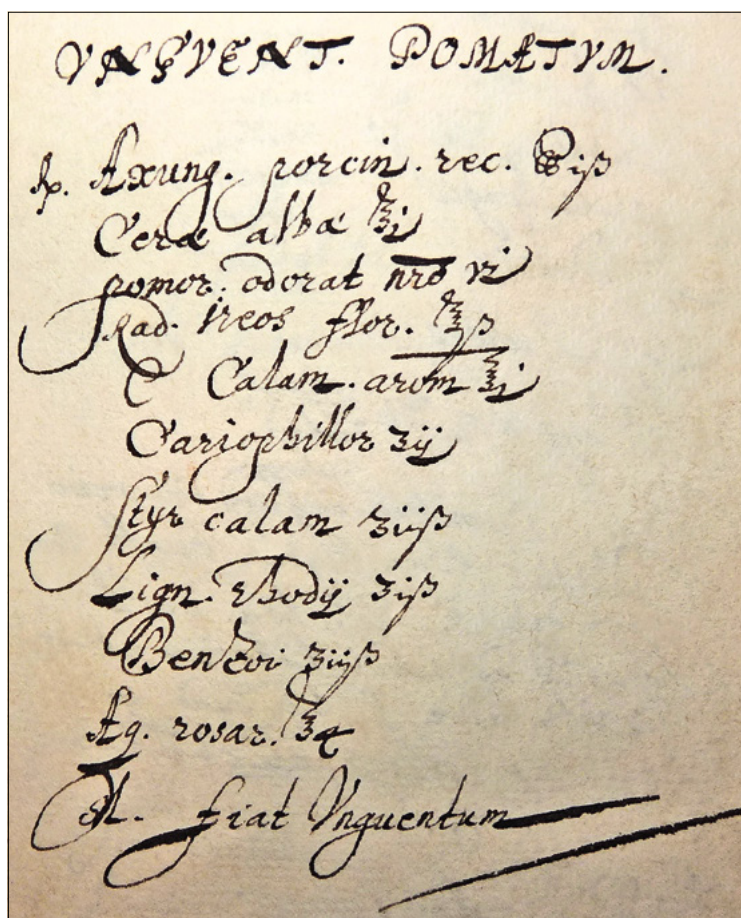 VNGVENT. POMATVM.
℞. Axung. porcin. rec. ℔iß
Ceræ albæ ℥j
pomor. odorat nrō vi
Rad. Ireos fflor. ℥ß
Calam. arom ℥j
Cariophillor ʒij
Styr calam ʒiiß
Lign. Rhodij ʒiß
Benzoi ʒiiß
Aq. rosar. ℥4
M. fiat Vnguentum